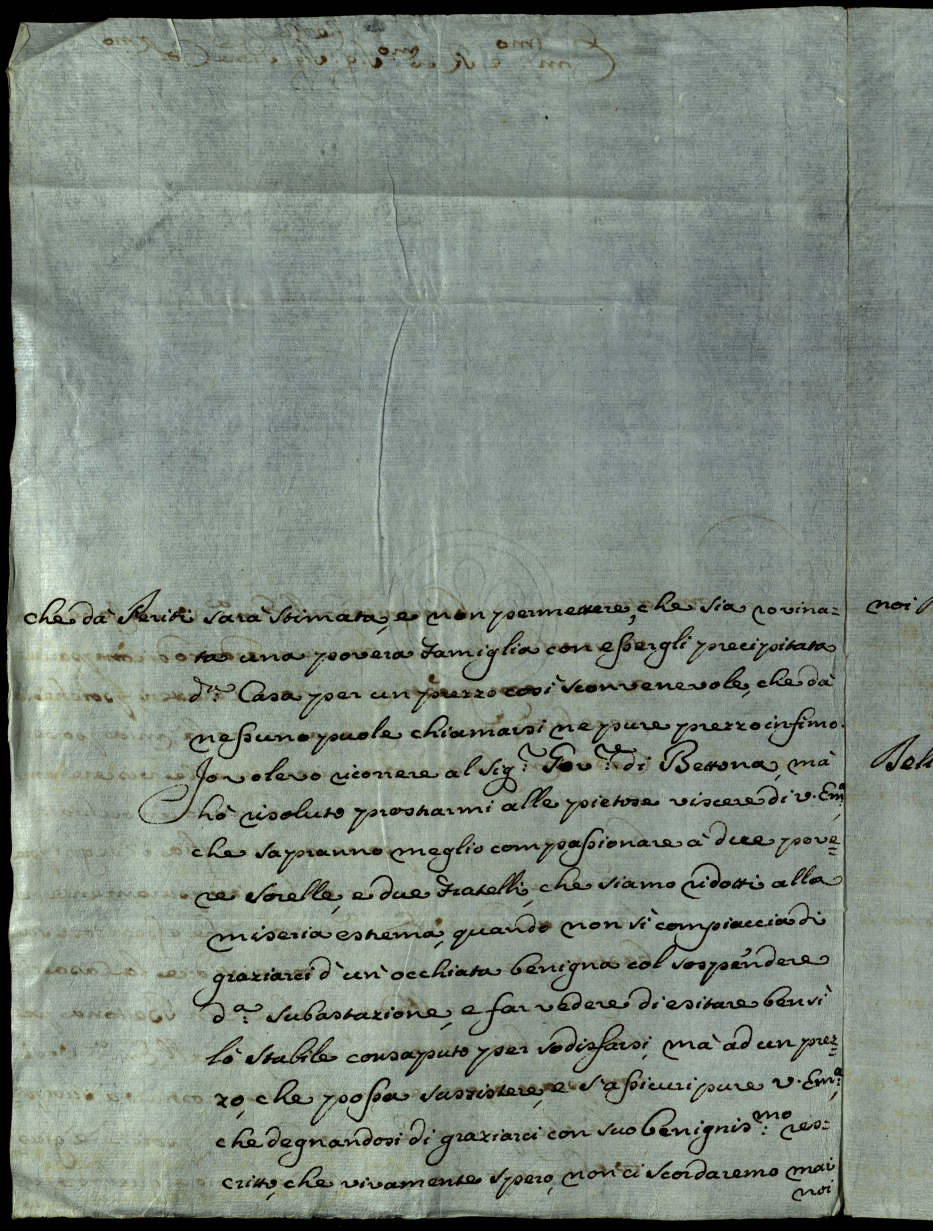 che dà Periti sarà stimata, e non permettere, che sia rovina=
ta una povera Famiglia con eßergli precipitata
d.ª Casa per un prezzo così sconvenevole, che dà
neßuno puole chiamarsi ne pure prezzo infimo.
Io volevo ricorrere al Sig.r Gov.re di Bettona, mà
hò risoluto prostrarmi alle pietose viscere di V. Em.ª,
che sapranno meglio compaßionare à due pove=
re Sorelle, e due Fratelli, che siamo ridotti alla
miseria estrema, quando non si compiaccia di
graziarci d'un'occhiata benigna col sospendere
d.ª subastazione, e far vedere di esitare bensì
lo Stabile consaputo per sodisfarsi, mà ad un prez=
zo, che poßa sussistere, e s'aßicuri pure V. Em.ª,
che degnandosi di graziarci con suo benignis.mo res=
critto, che vivamente spero, non ci scordaremo mai
noi
noi